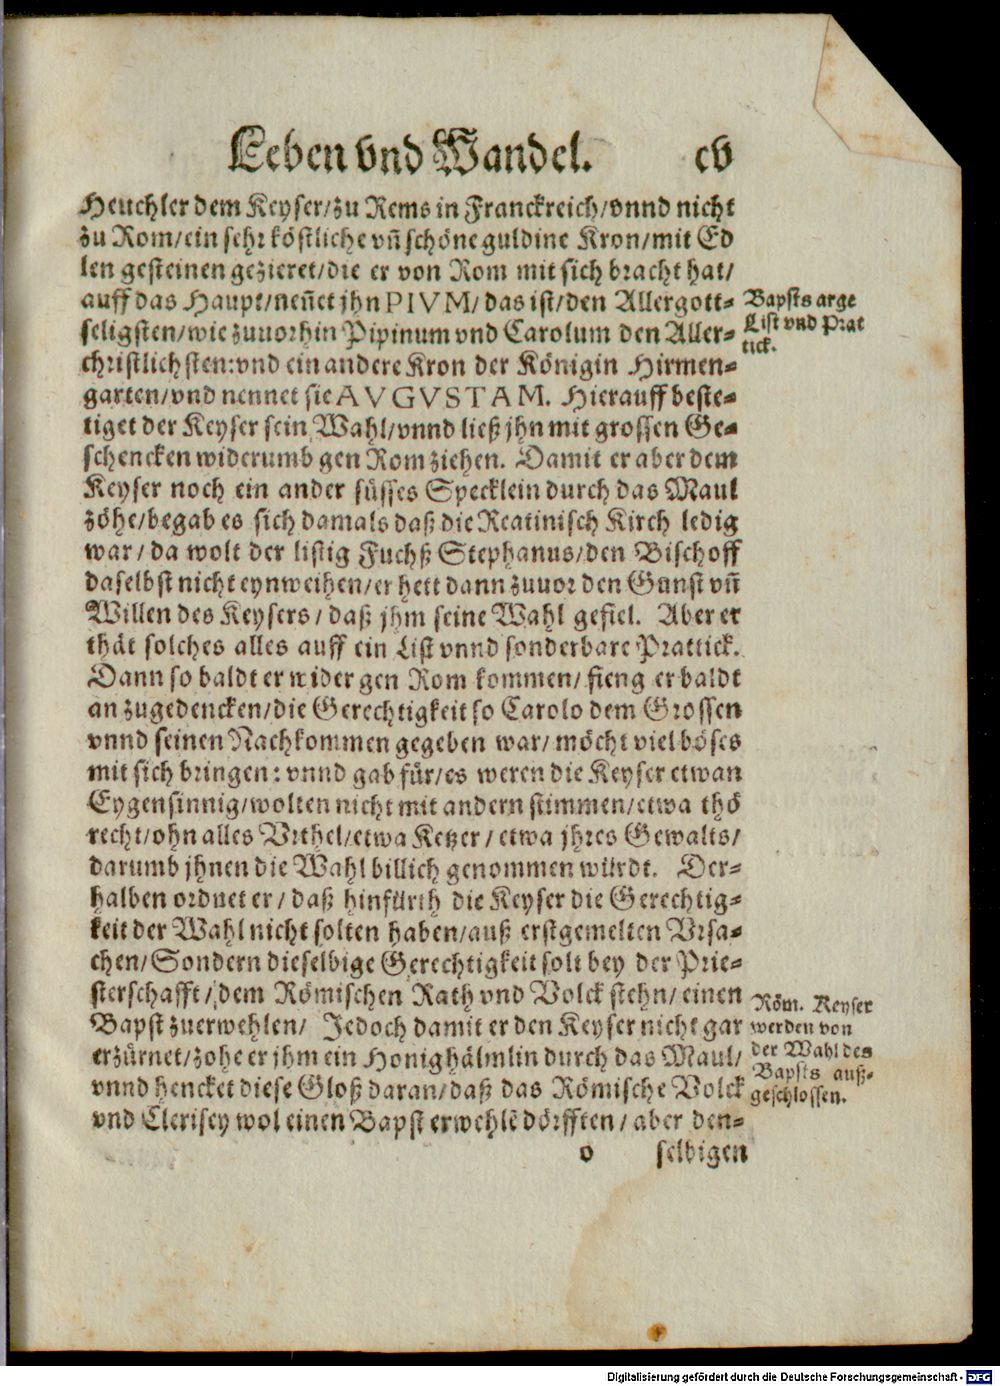 Leben vnd Wandel. cv
Heuchler dem Keyser/zu Rems in Franckreich/vnnd nicht
zu Rom/ein sehr köstliche vn̄ schöne guldine Kron/mit Ed
len gesteinen gezieret/die er von Rom mit sich bracht hat/
auff das Haupt/nen̄et jhn PIVM/das ist/den Allergott-
seligsten/wie zuuorhin Pipinum vnd Carolum den Aller-
christlichsten:vnd ein andere Kron der Königin Hirmen-
garten/vnd nennet sie AVGVSTAM. Hierauff beste-
tiget der Keyser sein Wahl/vnnd ließ jhn mit grossen Ge-
schencken widerumb gen Rom ziehen. Damit er aber dem
Keyser noch ein ander süsses Specklein durch das Maul
zöhe/begab es sich damals daß die Reatinisch Kirch ledig
war/da wolt der listig Fuchß Stephanus/den Bischoff
daselbst nicht eynweihen/er hett dann zuuor den Gunst vn̄
Willen des Keysers/daß jhm seine Wahl gefiel. Aber er
thät solches alles auff ein List vnnd sonderbare Prattick.
Dann so baldt er wider gen Rom kommen/fieng er baldt
an zugedencken/die Gerechtigkeit so Carolo dem Grossen
vnnd seinen Nachkommen gegeben war/möcht viel böses
mit sich bringen:vnnd gab für/es weren die Keyser etwan
Eygensinnig/wolten nicht mit andern stimmen/etwa thö
recht/ohn alles Vrthel/etwa Ketzer/etwa jhres Gewalts/
darumb jhnen die Wahl billich genommen würdt. Der-
halben ordnet er/daß hinfürth die Keyser die Gerechtig-
keit der Wahl nicht solten haben/auß erstgemelten Vrsa-
chen/Sondern dieselbige Gerechtigkeit solt bey der Prie-
sterschafft/dem Römischen Rath vnd Volck stehn/einen
Bapst zuerwehlen/ Jedoch damit er den Keyser nicht gar
erzürnet/zohe er jhm ein Honighälmlin durch das Maul/
vnnd hencket diese Gloß daran/daß das Römische Volck
vnd Clerisey wol einen Bapst erwehlē dörfften/aber den-
o selbigen
Bapsts arge
List vnd Prat
tick.
Röm. Keyser
werden von
der Wahl des
Bapsts auß-
geschlossen.
Digitalisierung gefördert durch die Deutsche Forschungsgemeinschaft - DFG